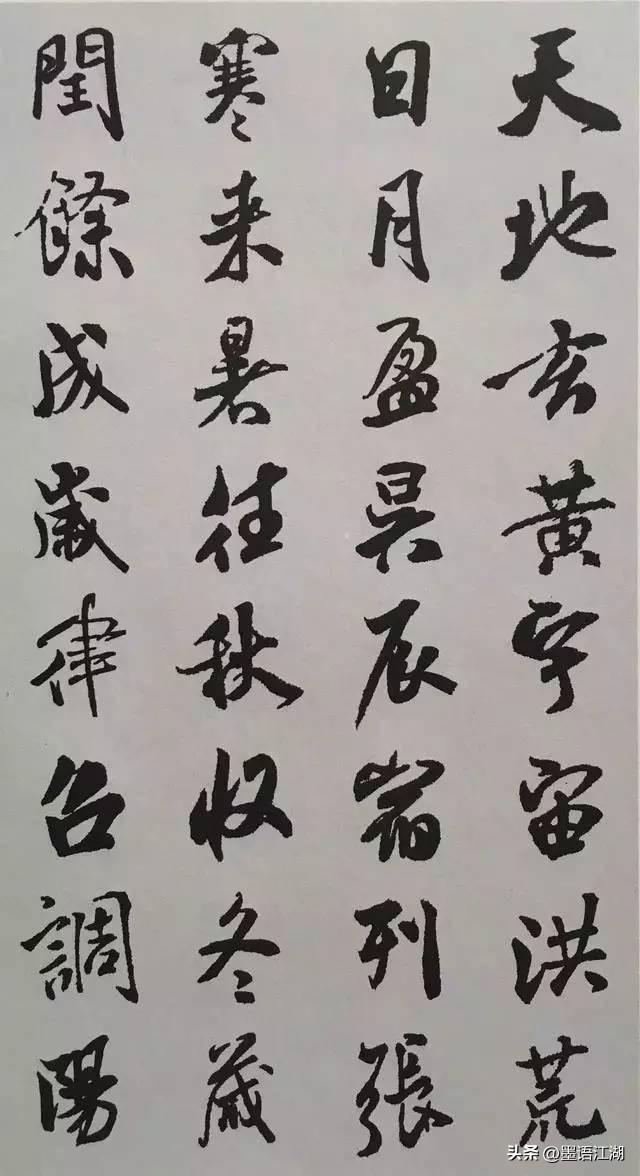 天地玄黃宇宙洪荒
日月盈昃辰宿列張
寒来暑往秋收冬藏
閏餘成歲律召調陽
头条 @墨语江湖